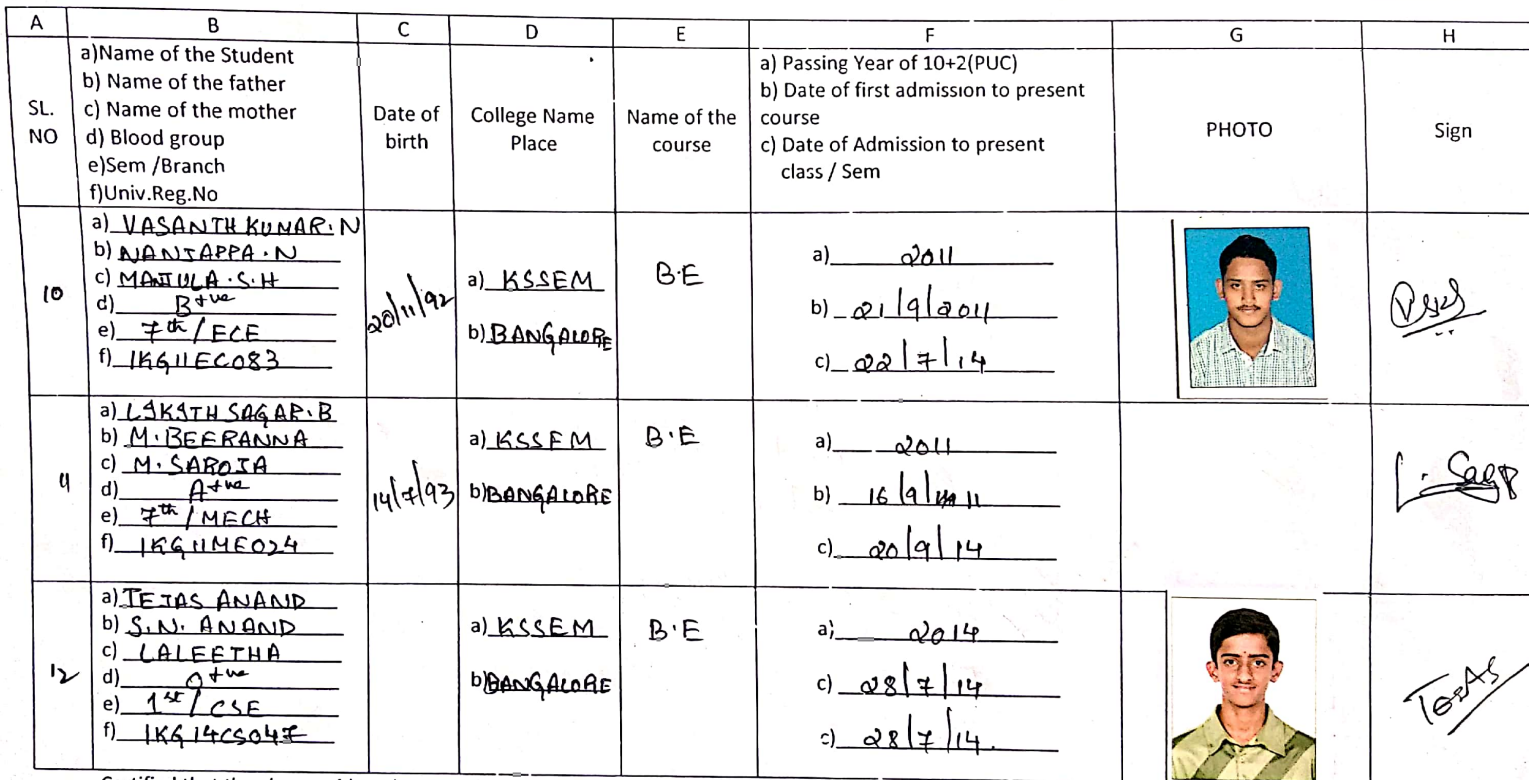 A B C D E F G H
SL. NO
a)Name of the Student
b) Name of the father
c) Name of the mother
d) Blood group
e)Sem /Branch
f)Univ.Reg.No
Date of birth
College Name Place
Name of the course
a) Passing Year of 10+2(PUC)
b) Date of first admission to present
course
c) Date of Admission to present
class / Sem
PHOTO
Sign
10
a) VASANTH KUMAR.N
b) NANJAPPA.N
c) MANJULA.S.H
d) B+ve
e) 7th / ECE
f) 1KG11EC083
20/11/92
a) KSSEM
b) BANGALORE
B.E
a) 2011
b) 21/9/2011
c) 22/7/14
11
a) LIKITH SAGAR.B
b) M.BEERANNA
c) M.SAROJA
d) A+ve
e) 7th / MECH
f) 1KG11ME024
14/7/93
a) KSSEM
b) BANGALORE
B.E
a) 2011
b) 16/9/11
c) 20/9/14
L. Sagar
12
a) TEJAS ANAND
b) S.N. ANAND
c) LALEETHA
d) O+ve
e) 1st / CSE
f) 1KG14CS047
a) KSSEM
b) BANGALORE
B.E
a) 2014
c) 28/7/14
c) 28/7/14.
TEJAS